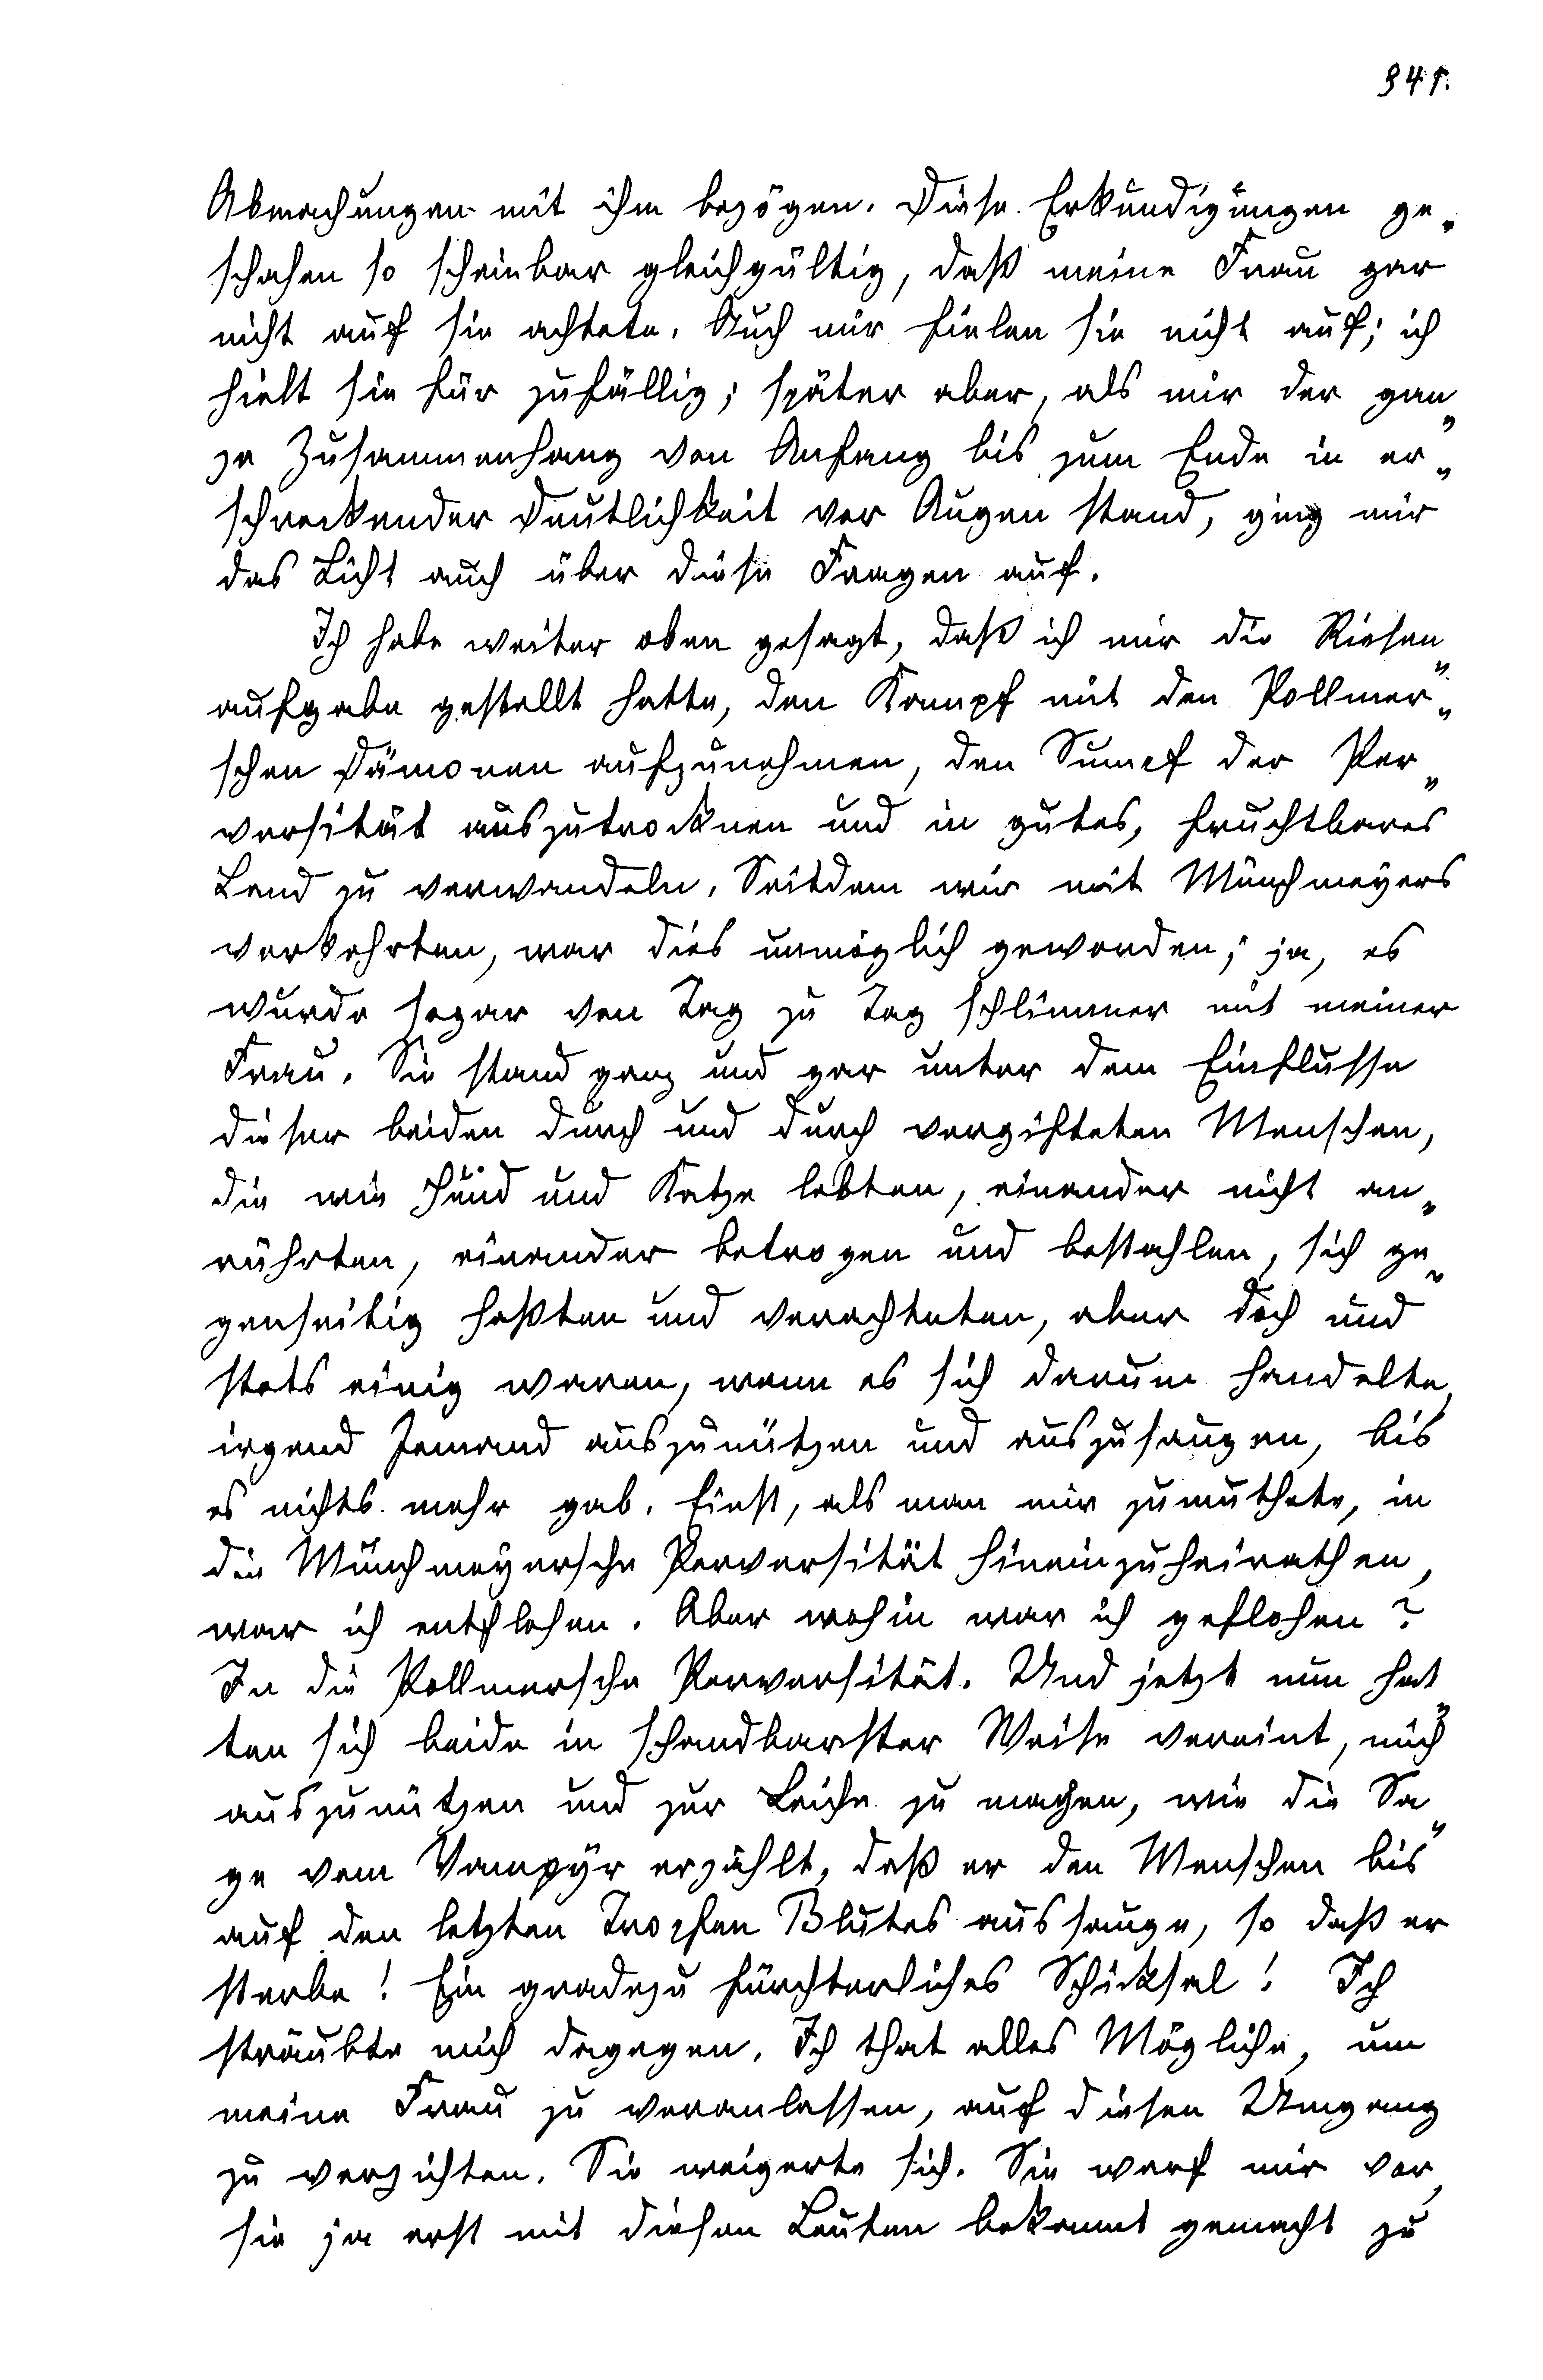 Abmachungen mit ihm bezögen. Diese Erkundigungen ge-
schahen so scheinbar gleichgültig, daß meine Frau gar
nicht auf sie achtete. Auch mir fielen sie nicht auf; ich
hielt sie für zufällig; später aber, als mir der gan-
ze Zusammenhang von Anfang bis zum Ende in er-
schreckender Deutlichkeit vor Augen stand, ging mir
das Licht auch über diese Fragen auf.
Ich habe weiter oben gesagt, daß ich mir die Riesen-
aufgabe gestellt hatte, den Kampf mit den Pollmer-
schen Dämonen aufzunehmen, den Sumpf der Per-
versität auszutrocknen und in gutes, fruchtbares
Land zu verwandeln. Seitdem wir mit Münchmeyers
verkehrten, war dies unmöglich geworden; ja, es
wurde sogar von Tag zu Tag schlimmer mit meiner
Frau. Sie stand ganz und gar unter dem Einflusse
dieser beiden durch und durch vergifteten Menschen,
die wie Hund und Katze lebten, einander nicht an-
rührten, einander betrogen und bestahlen, sich ge-
genseitig haßten und verachteten, aber doch und
stets einig waren, wenn es sich darum handelte,
irgend Jemand auszunützen und auszusaugen, bis
es nichts mehr gab. Einst, als man mir zumuthete, in
die Münchmeyersche Perversität hineinzuheirathen,
war ich entflohen. Aber wohin war ich geflohen?
In die Pollmersche Perversität. Und jetzt nun hat-
ten sich beide in schandbarster Weise vereint, mich
auszunützen und zur Leiche zu machen, wie die Sa-
ge vom Vampyr erzählt, daß er den Menschen bis
auf den letzten Tropfen Blutes aussauge, so daß er
sterbe! Ein gradezu fürchterliches Schicksal! Ich
sträubte mich dagegen. Ich that alles Mögliche, um
meine Frau zu veranlassen, auf diesen Umgang
zu verzichten. Sie weigerte sich. Sie warf mir vor,
sie ja erst mit diesen Leuten bekannt gemacht zu